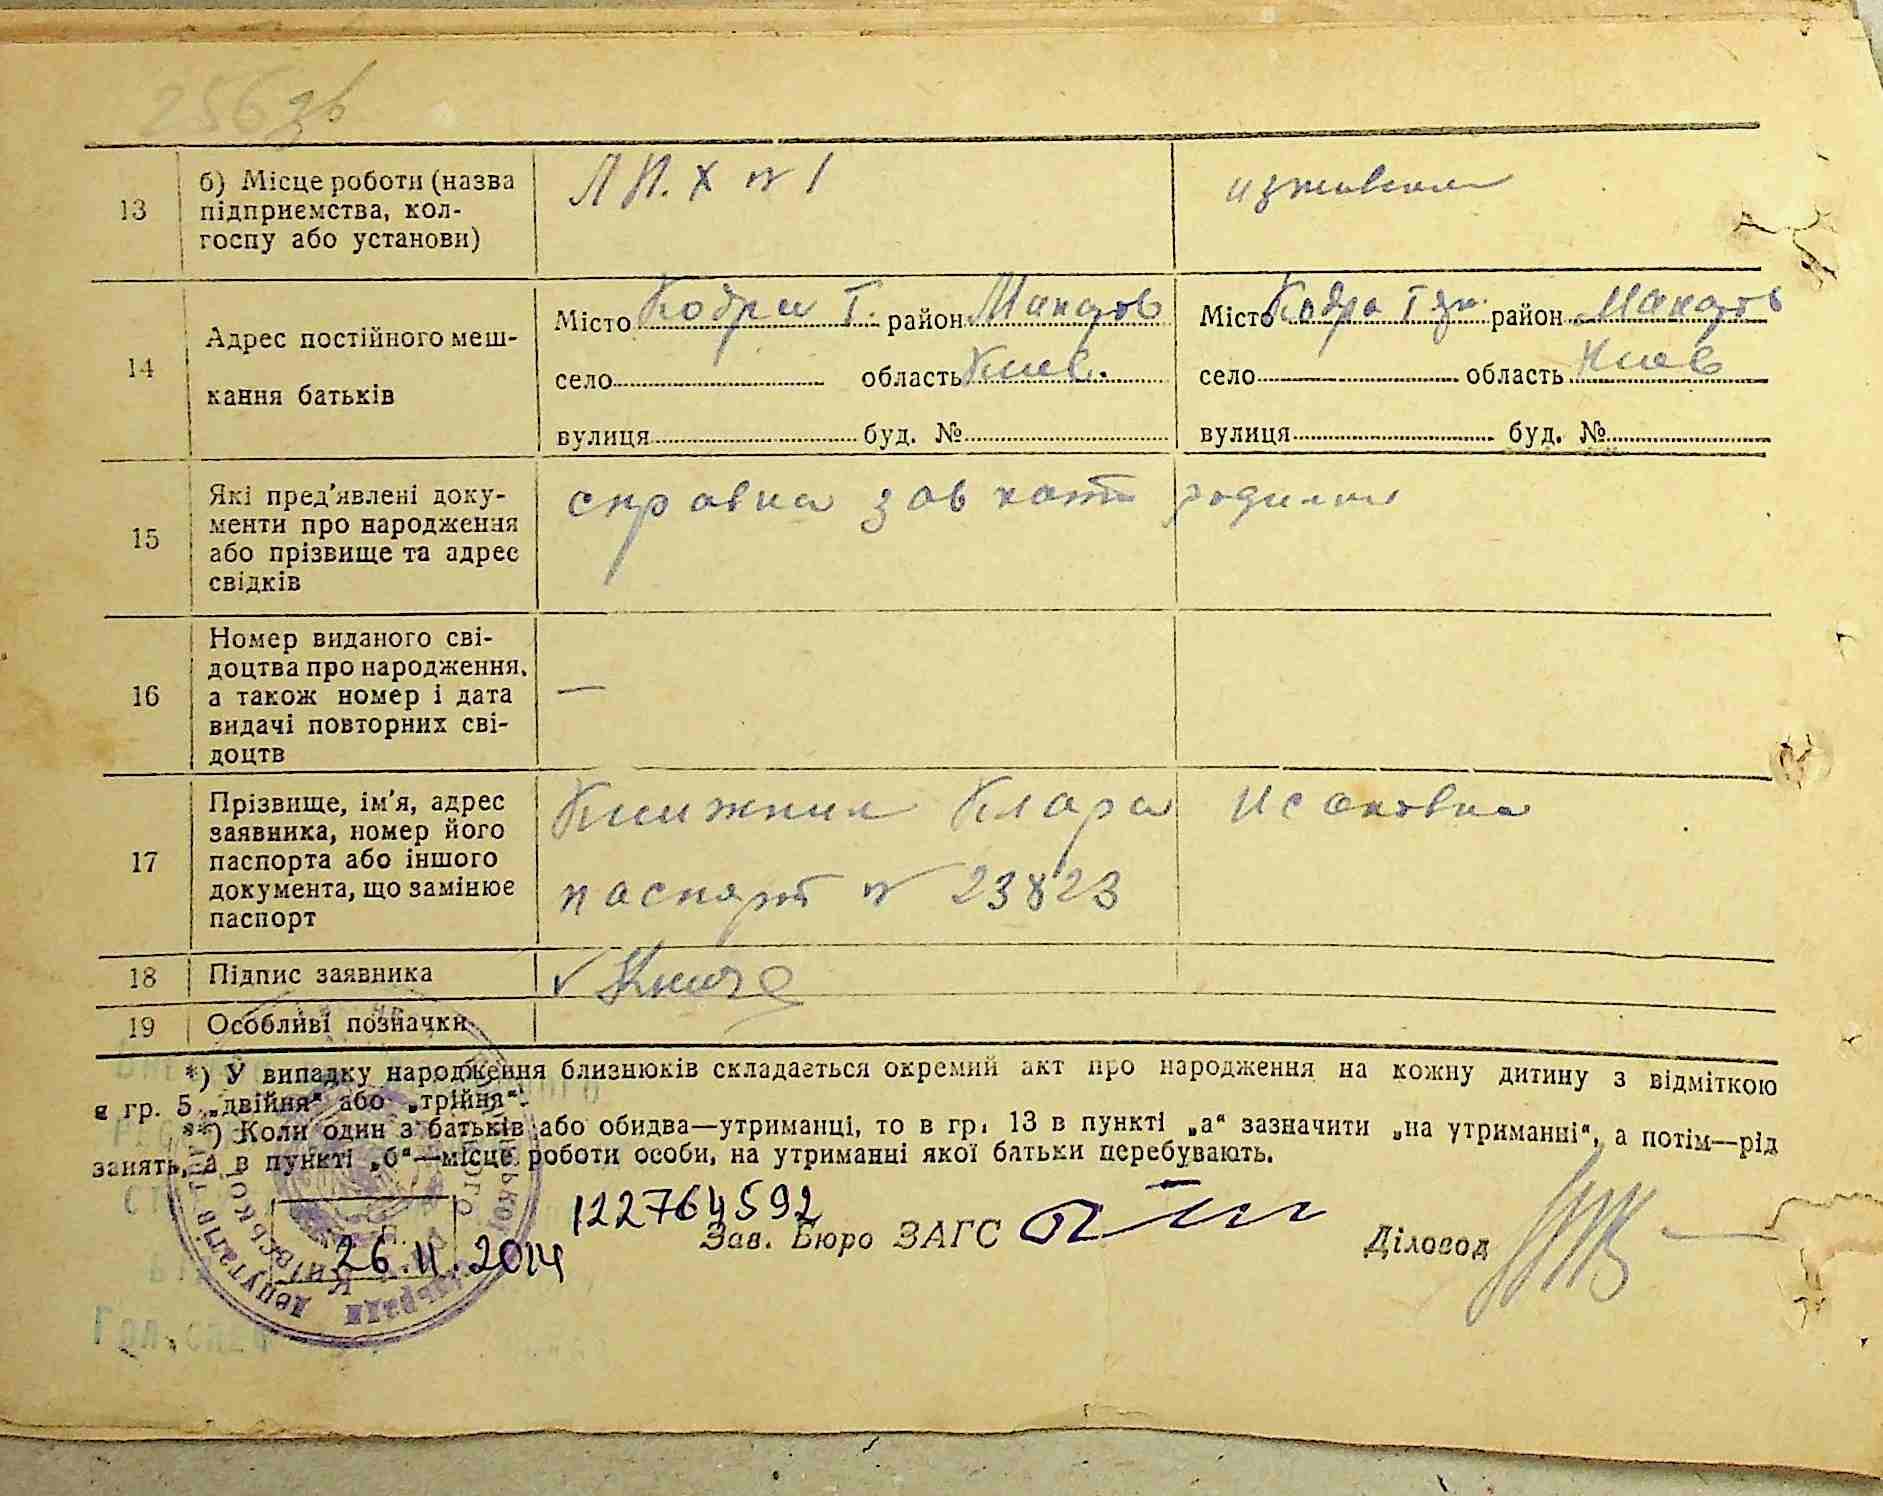 256 зв
13 б) Місце роботи (назва підприємства, колгоспу або установи) Л П. Х № 1
14 Адрес постійного мешкання батьків
Місто Кодра Т. район Макаров Місто Кодра Т район Макаров
село область Киев. село область Киев
вулиця буд. № вулиця буд. №
15 Які пред'явлені документи про народження або прізвище та адрес свідків справка родилки
16 Номер виданого свідоцтва про народження, а також номер і дата видачі повторних свідоцтв —
17 Прізвище, ім'я, адрес заявника, номер його паспорта або іншого документа, що замінює паспорт Книжник Клара Исаковна
паспорт № 23823
18 Підпис заявника
19 Особливі позначки
*) У випадку народження близнюків складається окремий акт про народження на кожну дитину з відміткою
в гр. 5 „двійня“ або „трійня“.
**) Коли один з батьків або обидва—утриманці, то в гр. 13 в пункті „а“ зазначити „на утриманні“, а потім—рід
занять, а в пункті „б“—місце роботи особи, на утриманні якої батьки перебувають.
122764592
Зав. Бюро ЗАГС Діловод
26.11.2014